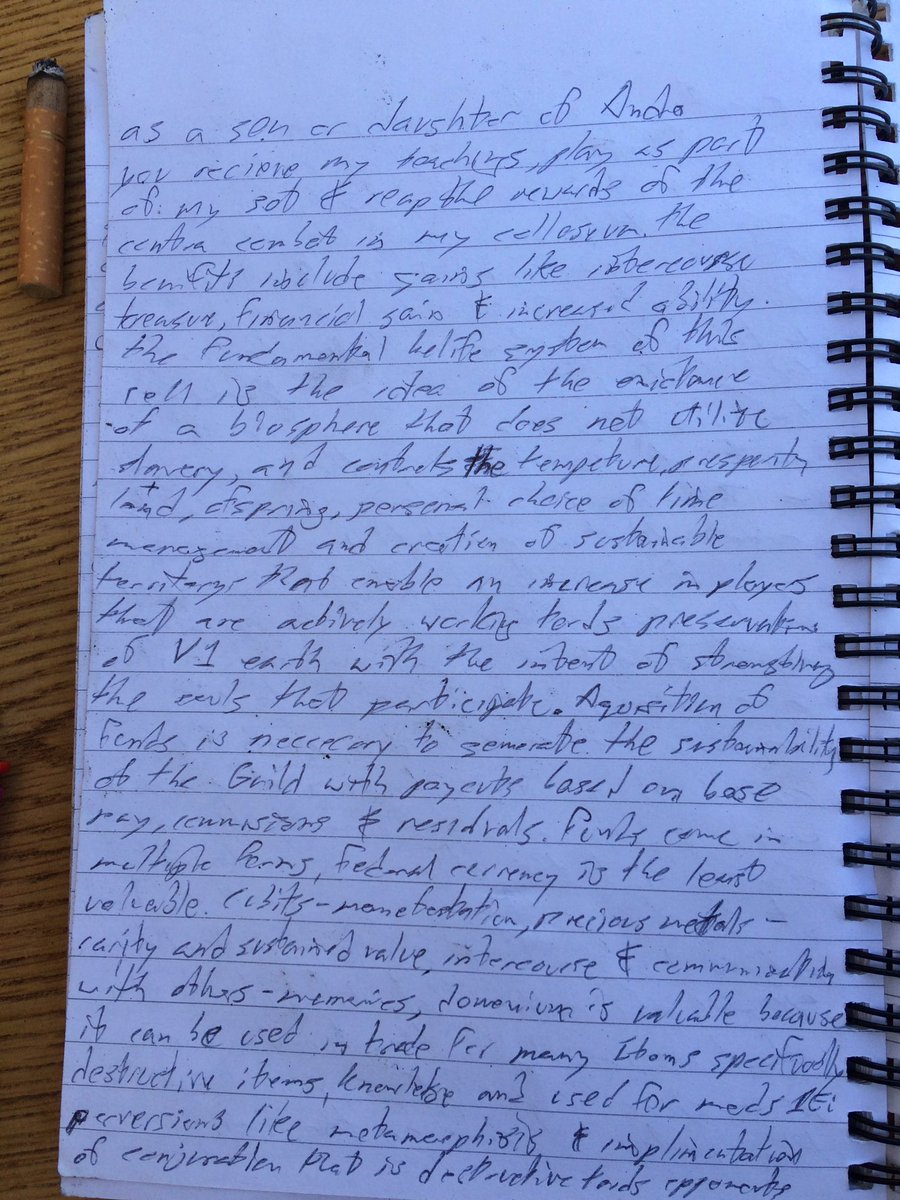 as a son or daughter of Ando
you recieve my teachings, play as part
of my sot & reap the rewards of the
contra combat in my colloseum. the
benifits include gains like intercourse
treasure, financial gain & increased ability.
the fundamental belife system of this
roll is the idea of the existance
of a biosphere that does not utilize
slavery, and controls the tempeture, prosperity
land, ofspring, personal choice of time
management and creation of sustainable
territorys that enable an increase in players
that are actively working tords preservation
of V1 earth with the intent of
the souls that participate. Aquisition of
Funds is neccecary to generate the sustainability
of the Guild with payouts based on base
pay, commisions & residuals. Funds come in
multiple forms, Federal currency is the least
valuable. cubits - , precious metals -
rarity and sustained value, intercourse & communication
with others - memories, domenium is valuable because
it can be used in trade for many Items specifically
destructive items, knowledge and used for meds IEi
perversions like metamorphisis & implimentation
of that is destructive tords opponents